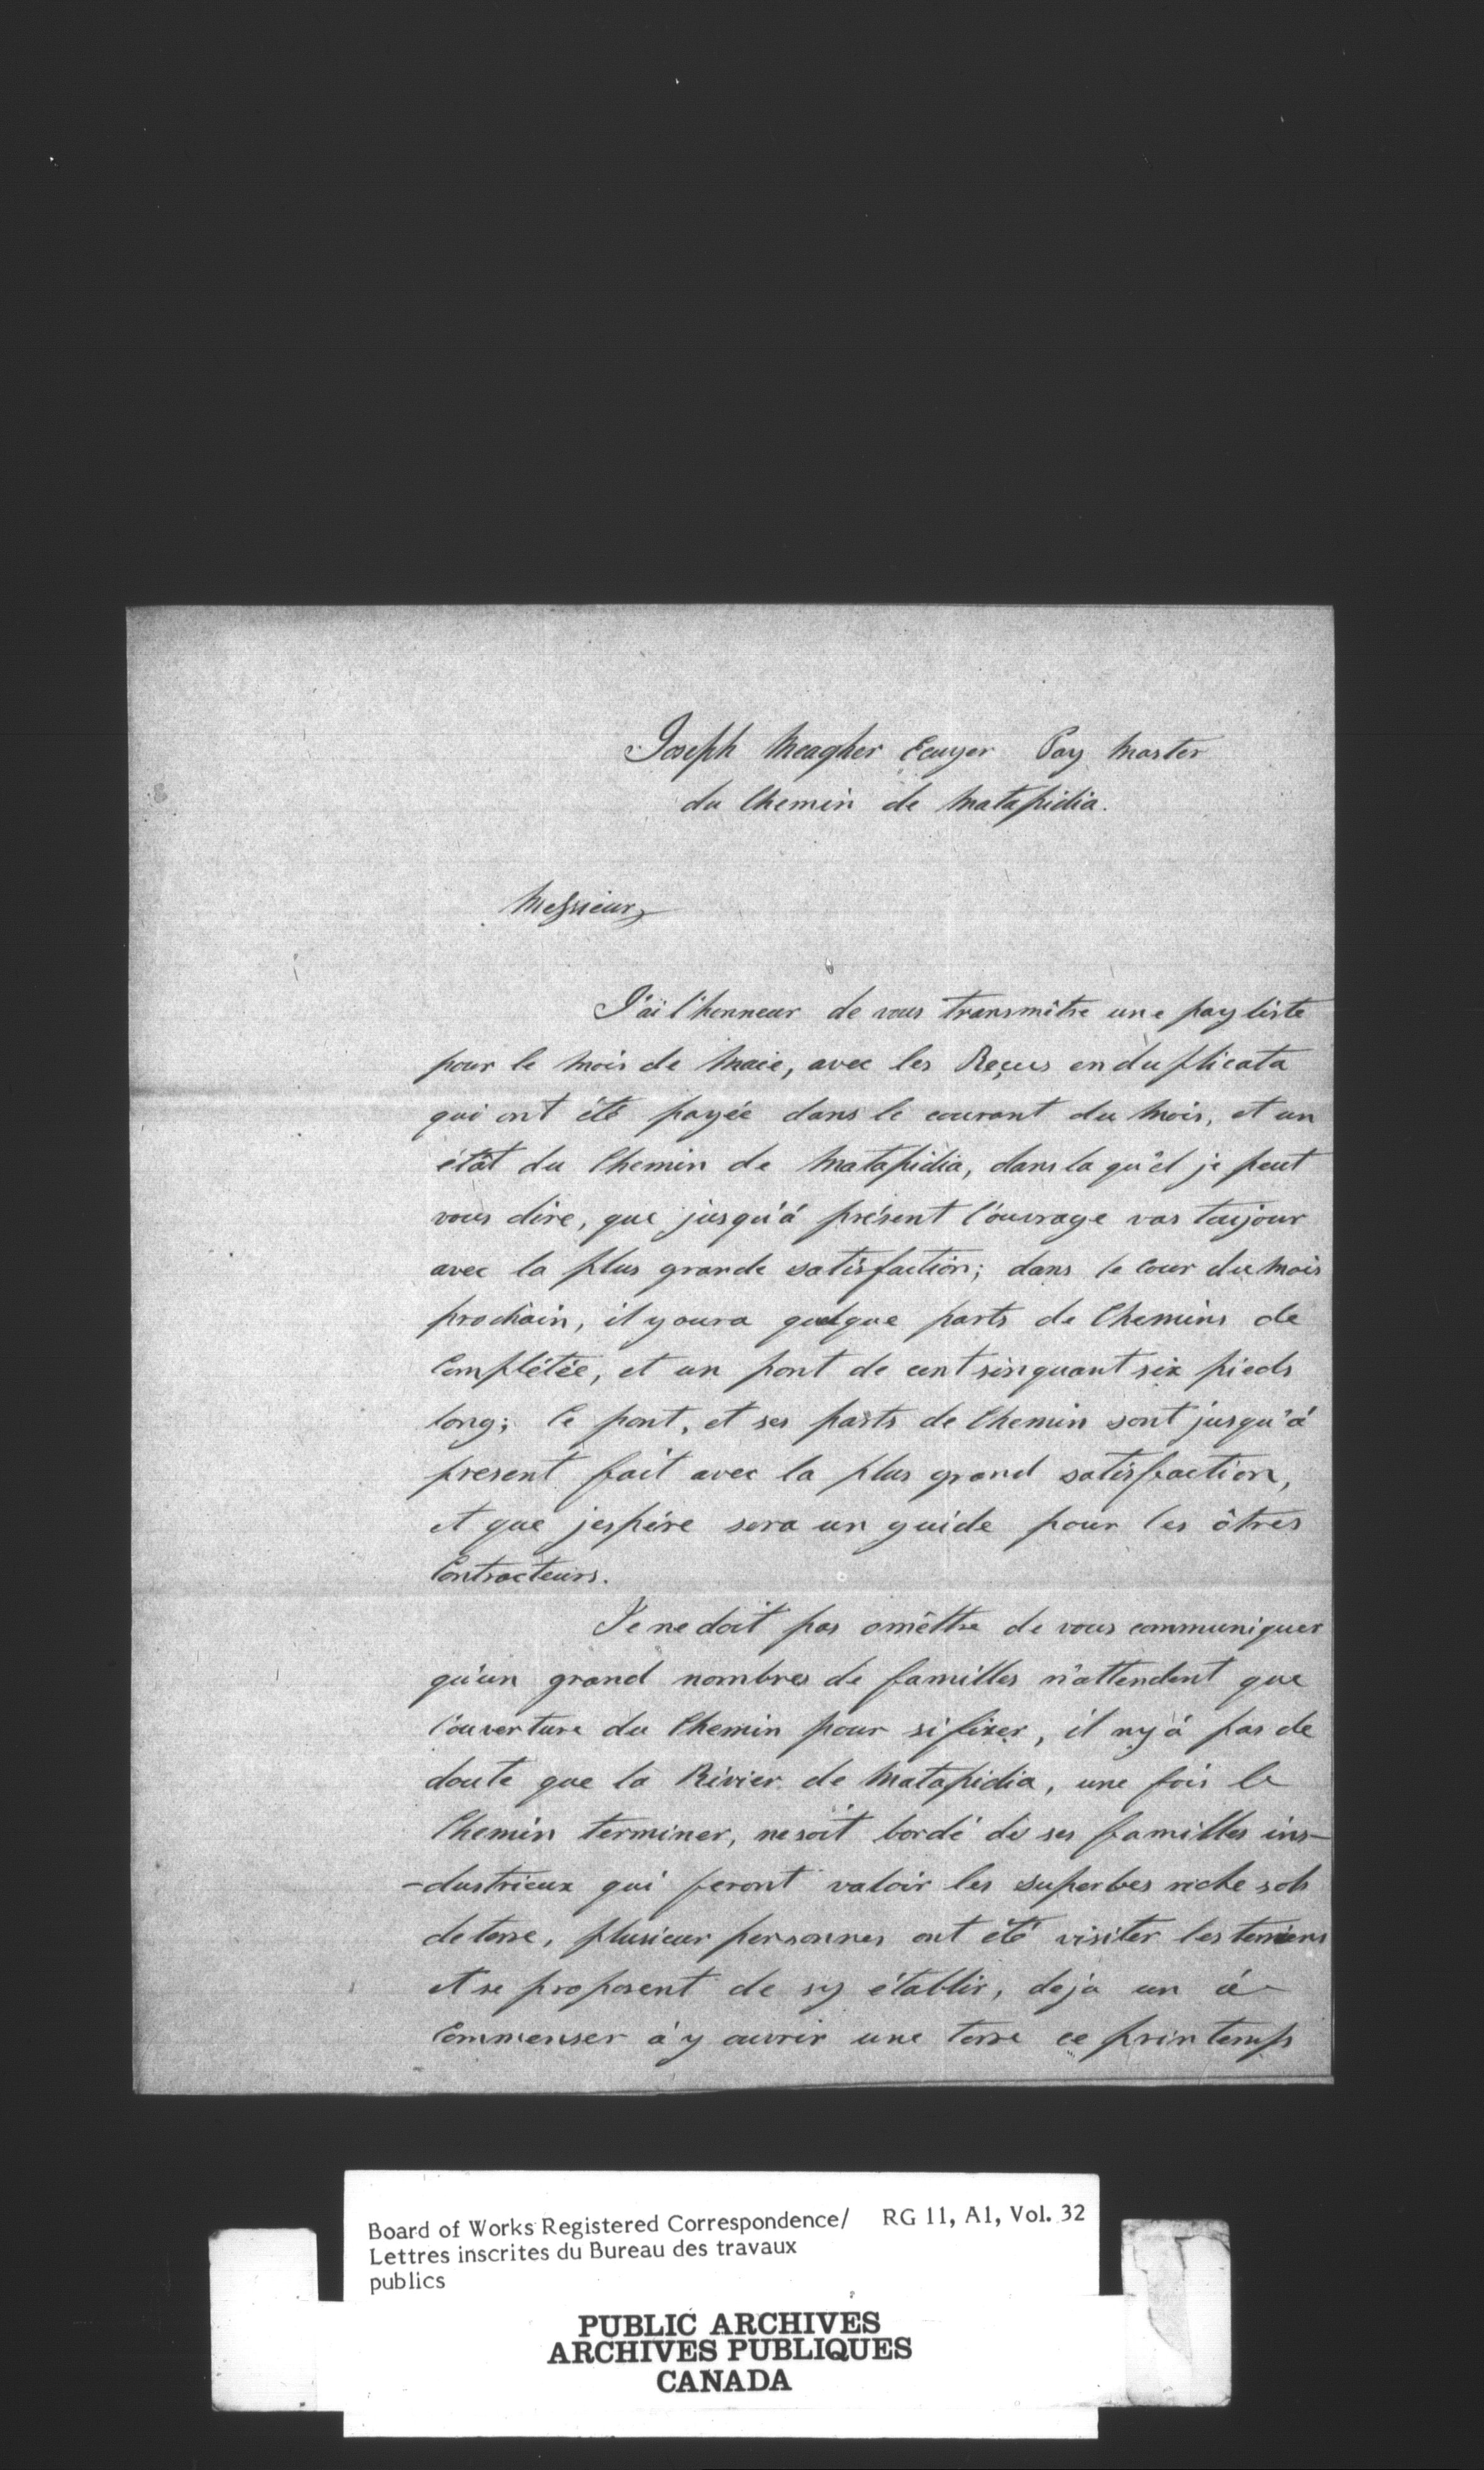 Joseph Meagher Ecuyer Pay Master
du Chemin de Matapidia.
Messieurs,
J'ai l'honneur de vous transmître une pay liste
pour le mois de Maie, avec les Reçus en duplicata
qui ont été payée dans le courant du Mois, et un
étât du Chemin de Matapidia, dans la qu'el je peut
vous dire, que jusqu'á présent l'ouvrage vas toujour
avec la plus grande satisfaction; dans le Cour du Mois
prochain, il y oura quelque parts de Chemins de
Complétée, et un pont de cent sinquant six pieds
long; Ce pont, et ses parts de Chemin sont jusqu'á
present fait avec la plus grand satisfaction,
et que jespére sera un guide pour les ôtres
Contracteurs.
Je ne doit pas omêttre de vous communiquer
qu'un grand nombres de familles n'attendent que
l'ouverture du Chemin pour si fixer, il ny á pas de
doute que la Rivier de Matapidia, une fois le
Chemin terminer, ne soit bordé de ses familles ins-
-dustrieux qui feront valoir les superbes riche sols
de terre, plusieur personnes ont été visiter les terriens
et se proposent de sy établir, deja un á
Commenser á y ouvrir une terre ce printemps
Board of Works Registered Correspondence/ RG 11, A1, Vol. 32
Lettres inscrites du Bureau des travaux
publics
PUBLIC ARCHIVES
ARCHIVES PUBLIQUES
CANADA